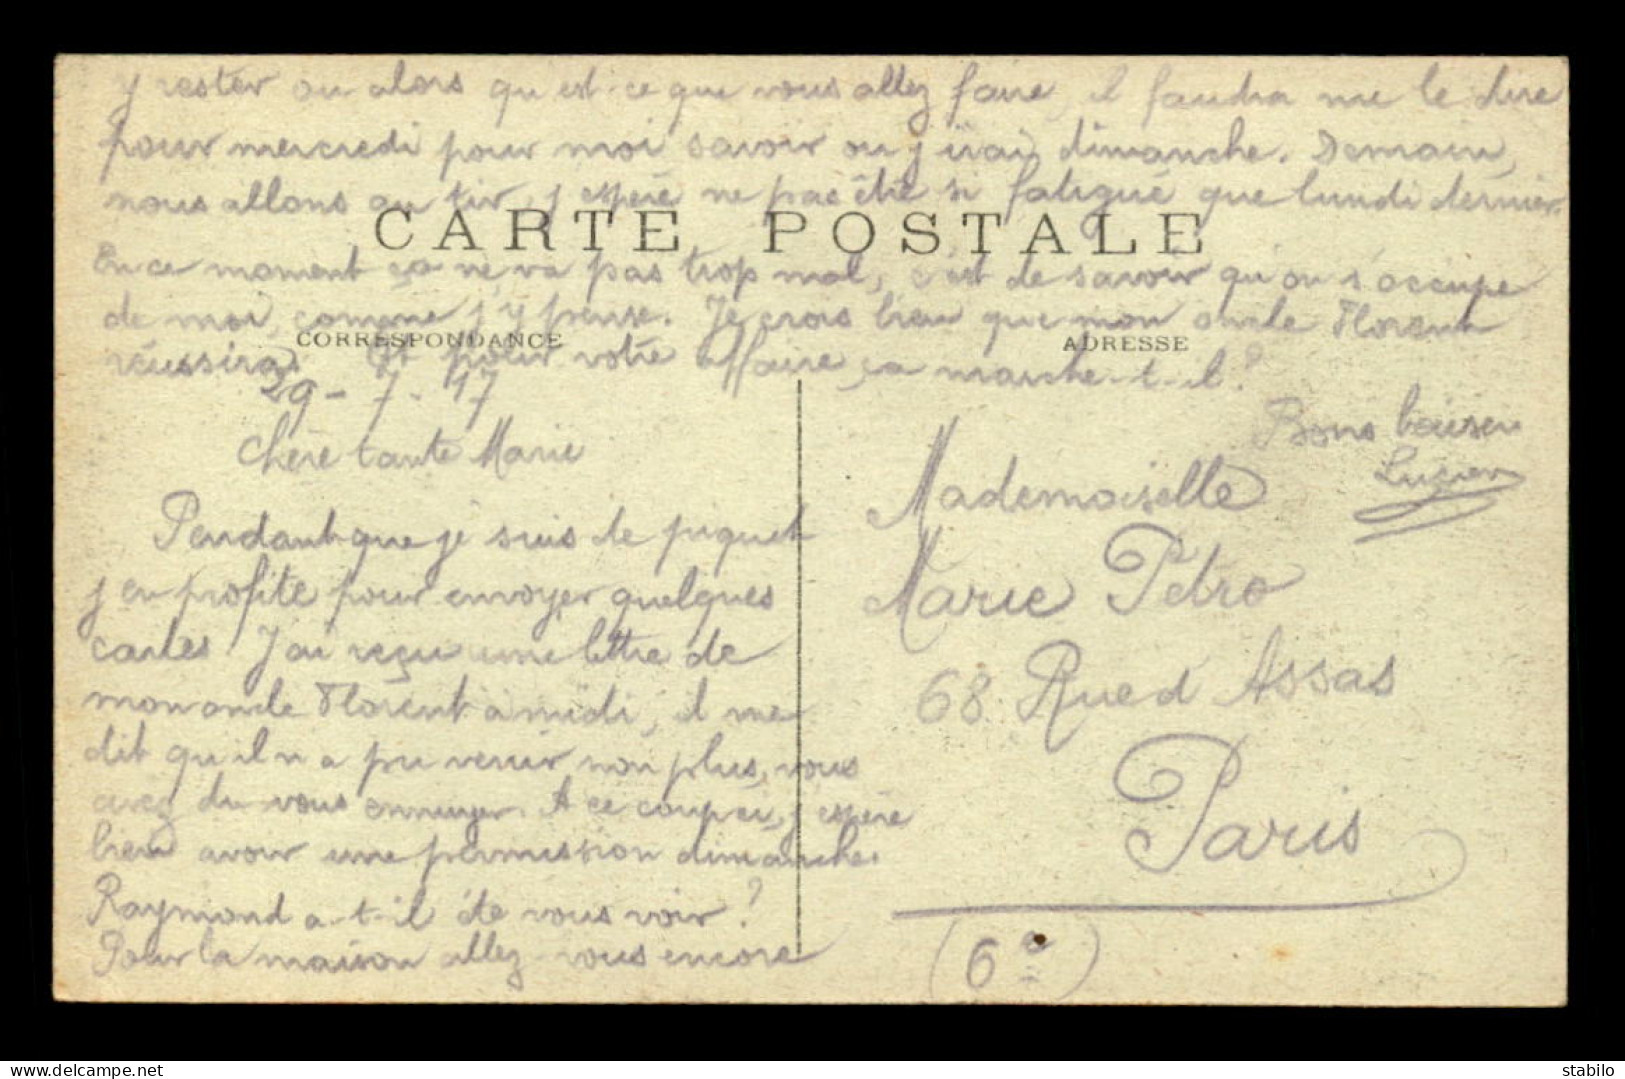 y rester ou alors qu est-ce que vous allez faire, il faudra me le dire
pour mercredi pour moi savoir ou j irai dimanche. Demain,
nous allons au tir, j espère ne pas être si fatigué que lundi dernier.
CARTE POSTALE
En ce moment ça ne va pas trop mal, c'est de savoir qu'on s'occupe
de moi, comme j'y pense. Je crois bien que mon oncle Florent
CORRESPONDANCE
ADRESSE
réussira. Et pour votre affaire, ça marche-t-il?
29-7-17
Bons baisers
Lucien
Chère tante Marie
Pendant que je suis de piquet
j en profite pour envoyer quelques
cartes. J'ai reçu une lettre de
mon oncle Florent a midi, il me
dit qu il n a pu venir non plus, vous
avez du vous ennuyer. A ce coup ci, j espère
bien avoir une permission dimanche.
Raymond a-t-il été vous voir?
Pour la maison allez-vous encore
Mademoiselle
Marie Petro
68 Rue d Assas
Paris
(6e)
stabilo